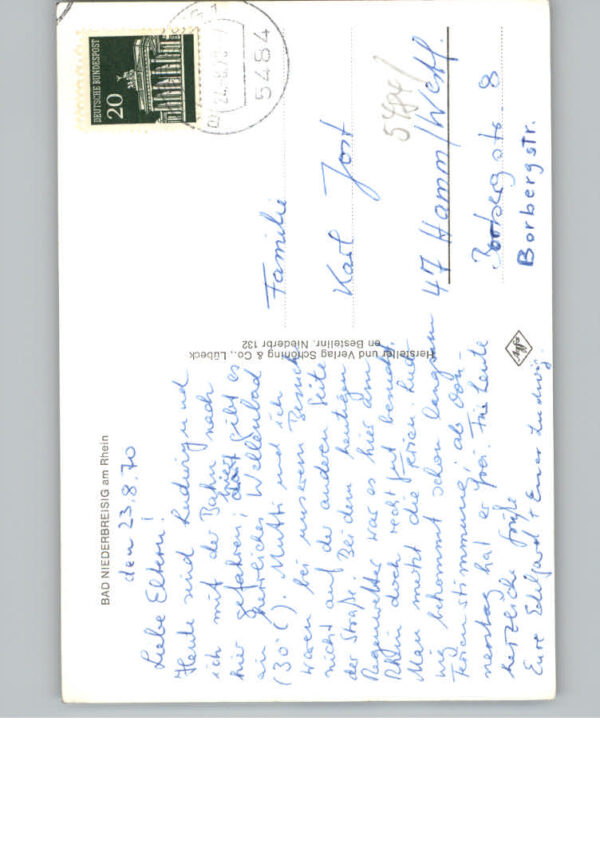 BAD NIEDERBREISIG am Rhein
den 23.8.70
Liebe Eltern!
Heute sind Ludwig und
ich mit der Bahn nach
hier gefahren; hier gibt es
ein herrliches Wellenbad
(30°C). Mutti und ich
waren bei unserem Besuch
nicht auf der anderen Seite
der Straße. Bei dem heutigen
Regenwetter war es hier am
Rhein doch recht gut besucht.
Man merkt die Ferien. Lud-
wig bekommt schon langsam
Ferienstimmung; ab Don-
nerstag hat er frei. Für heute
herzliche Grüße
Eure Edelgard + Euer Ludwig.
Hersteller und Verlag Schöning & Co., Lübeck
en Bestellnr. Niederbr 132
DEUTSCHE BUNDESPOST
20
24.-8.70
5484
5484/
Familie
Karl Jost
47 Hamm/Westf.
Borbergstr. 8
Borbergstr.